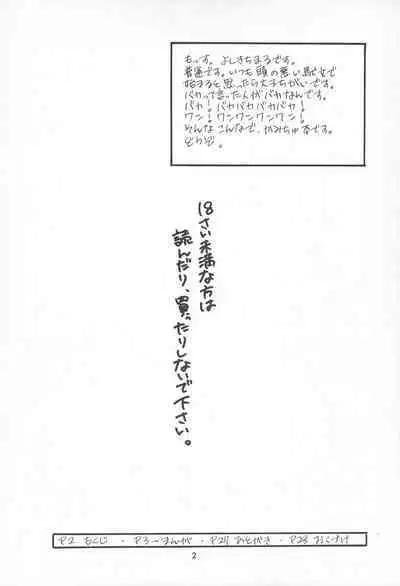 もっす。よしきちまろです。
普通です。いつも頭の悪い駄文で
始まると思ったら大まちがいです。
バカって言った人がバカなんです。
バカ！バカバカバカバカ！
ワン！ワンワンワンワン！
そんなこんなで、かみちゅ本です。
どうぞ。
18さい未満な方は
読んだり、買ったりしないで下さい。
P2 もくじ ・ P3〜まんが ・ P27 あとがき ・ P28 おくづけ
2